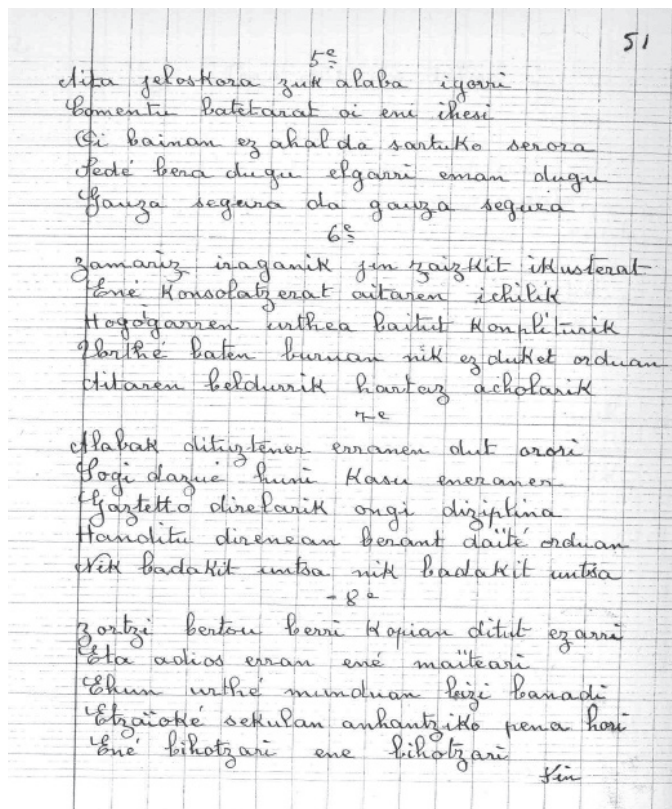 51
5e
Aita jeloskora zuk alaba igorri
Comentu batetarat oi eni ihesi
Oi bainan ez ahal da sartuko serora
Fedé bera dugu elgarri eman dugu
Gauza segura da gauza segura
6e
Zamariz iraganik jin zaizkit ikusterat
Ené Konsolatzerat aitaren ichilik
Hogógarren urthea baitut Konplíturik
Urthé baten buruan nik ez duket orduan
Aitaren beldurrik hartaz acholarik
7e
Alabak dituztener erranen dut orori
Sogi dazué huni Kasu eneraner
Gaztetto direlarik ongi diziplina
Handitu direnean berant daïté orduan
Nik badakit untsa nik badakit untsa
- 8e
Zortzi bertsu berri Kopian ditut ezarri
Eta adios erran ené maïteari
Ehun urthé munduan bizi banadi
Etzaïoké sekulan anhantziko pena hori
Ené bihotzari ene bihotzari
Fin